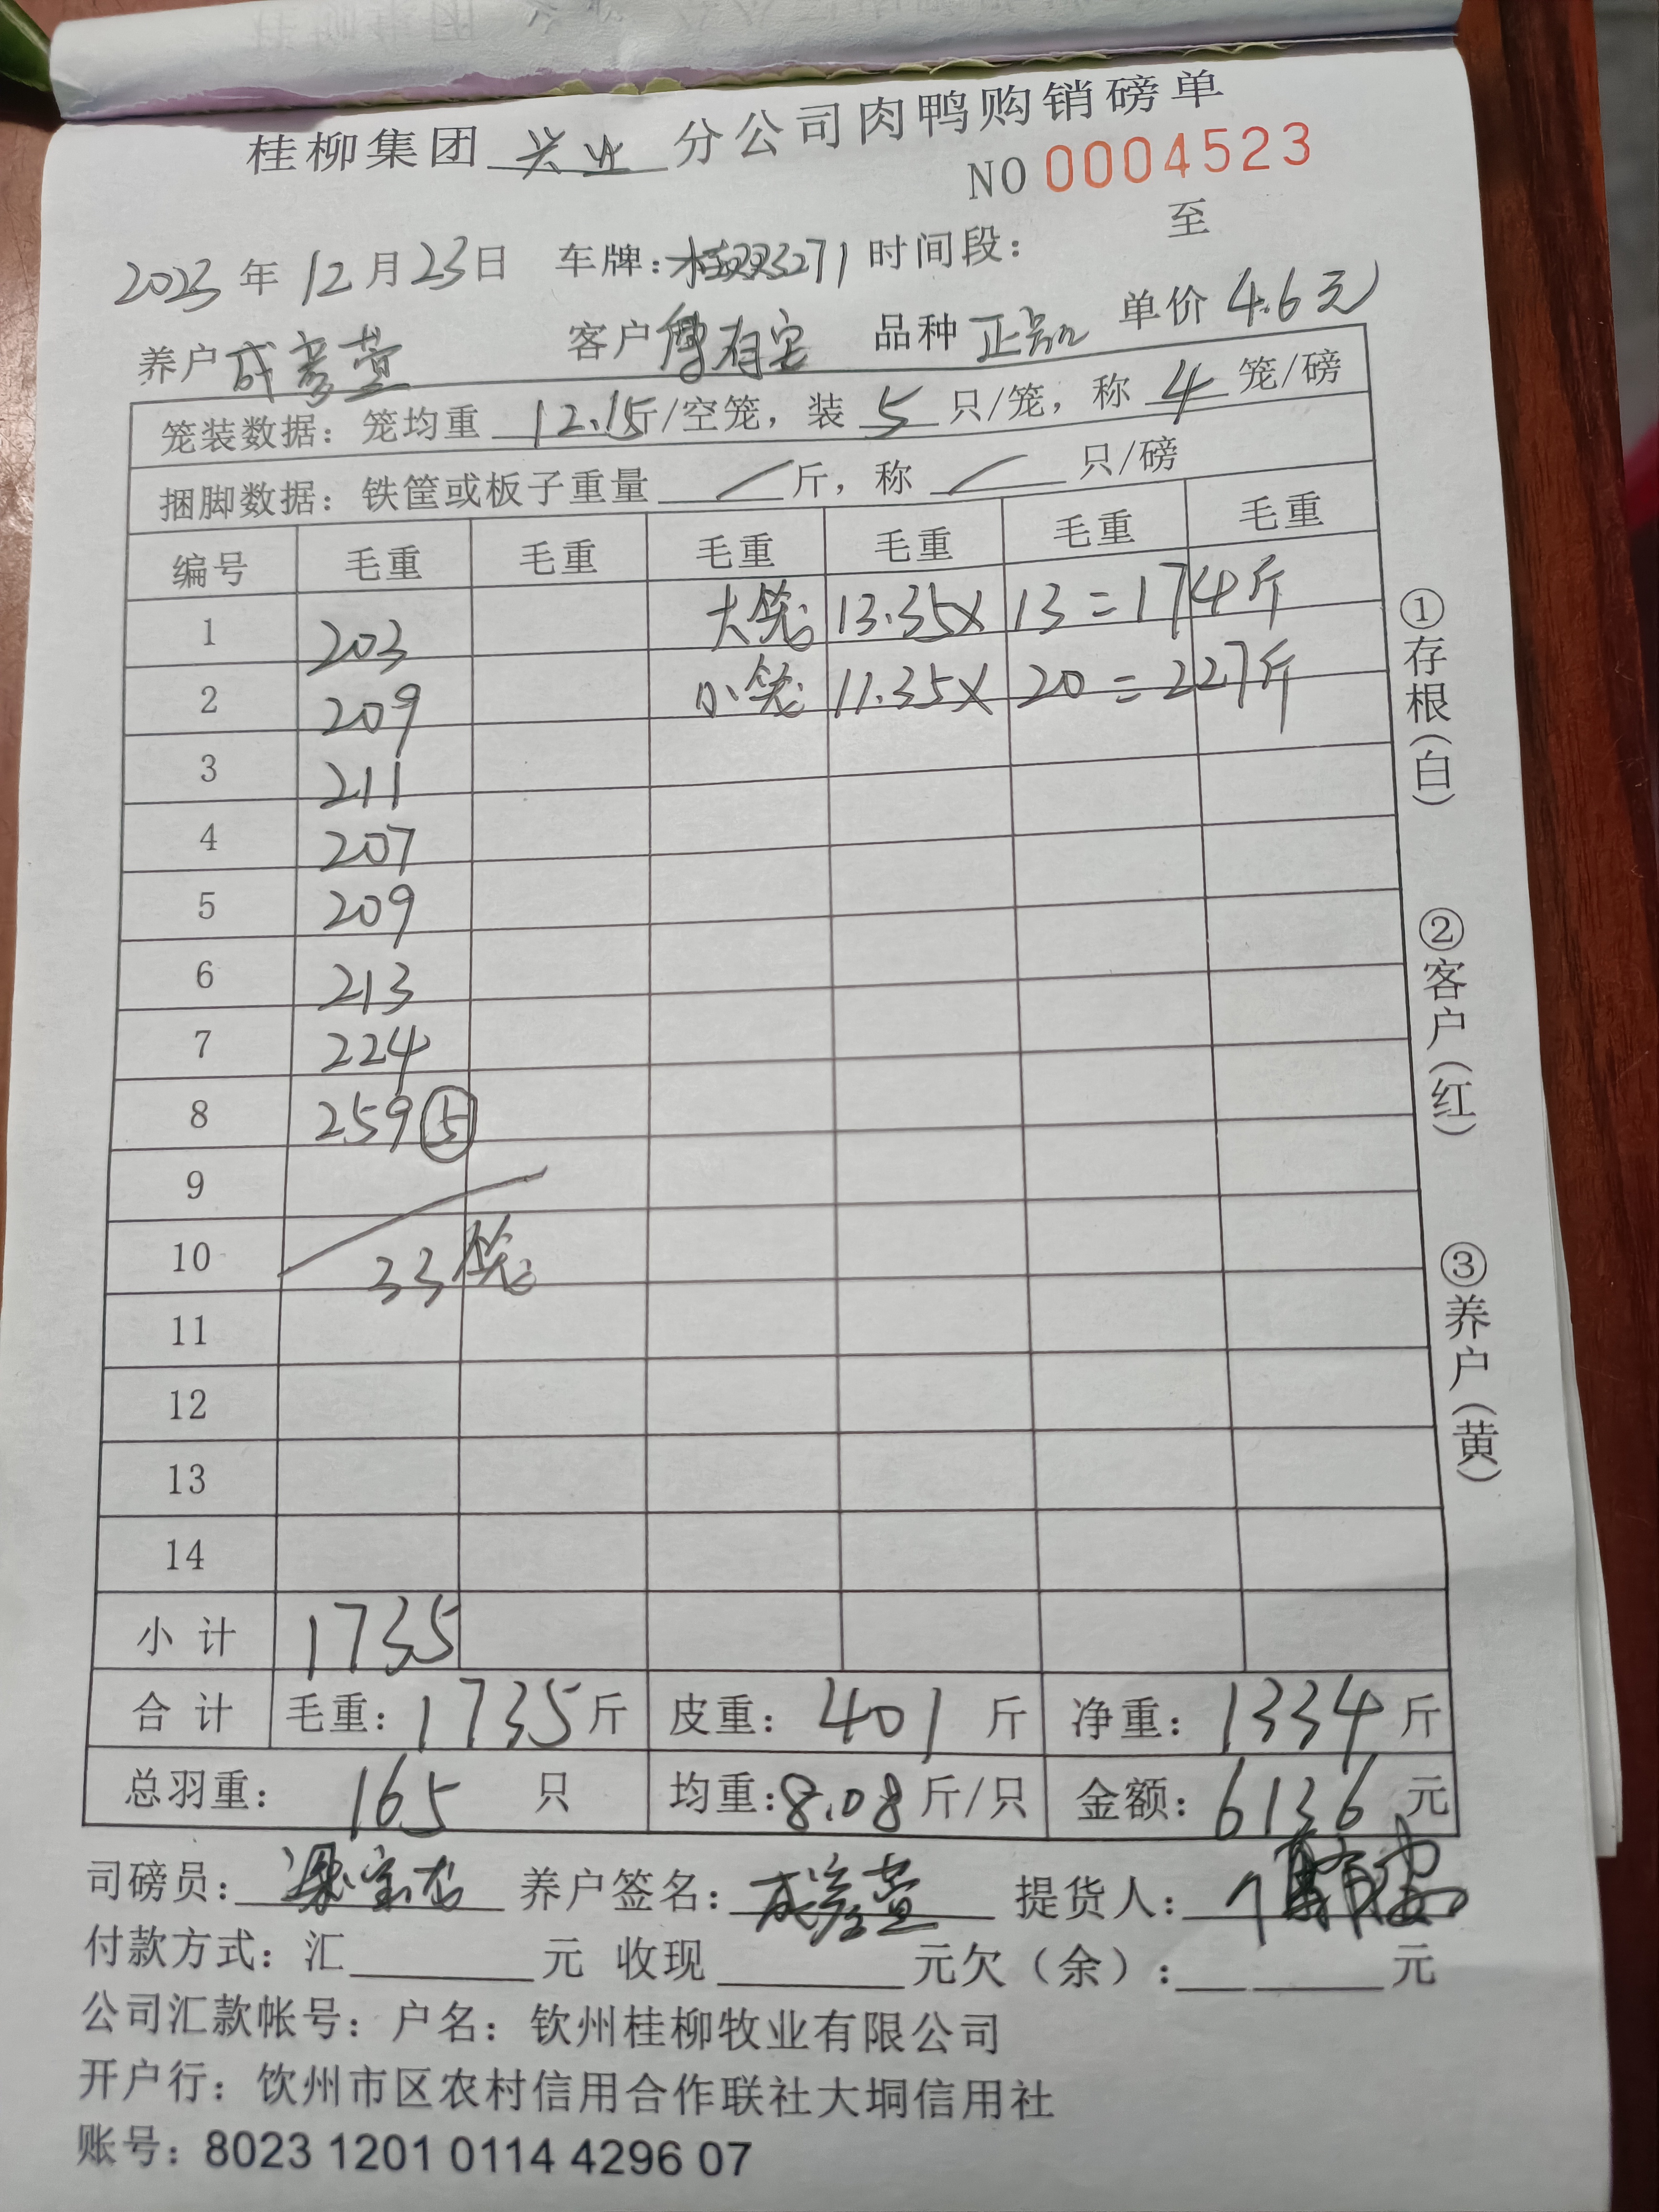 桂柳集团 兴业 分公司肉鸭购销磅单
NO 0004523
2023 年 12 月 23 日 车牌: 3271 时间段: 至
养户 成彦萱 客户 有宝 品种 正品 单价 4.6元
笼装数据: 笼均重 12.15 斤/空笼, 装 5 只/笼, 称 4 笼/磅
捆脚数据: 铁筐或板子重量 / 斤, 称 / 只/磅
编号 毛重 毛重 毛重 毛重 毛重 毛重
1 203 大笼 13.35 × 13 = 174斤
2 209 小笼 11.35 × 20 = 227斤
3 211
4 207
5 209
6 213
7 224
8 259 ⑤
9
10 33笼
11
12
13
14
小计 1735
合计 毛重: 1735 斤 皮重: 401 斤 净重: 1334 斤
总羽重: 165 只 均重: 8.08 斤/只 金额: 6136 元
司磅员: 养户签名: 成彦萱 提货人:
付款方式: 汇 元 收现 元欠(余): 元
公司汇款帐号: 户名: 钦州桂柳牧业有限公司
开户行: 饮州市区农村信用合作联社大垌信用社
账号: 8023 1201 0114 4296 07
①存根(白)
②客户(红)
③养户(黄)